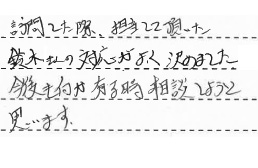 訪問した際、担当して頂いた
鈴木社の対応がよく決めました
今後も何か有る時相談しようと
思います。